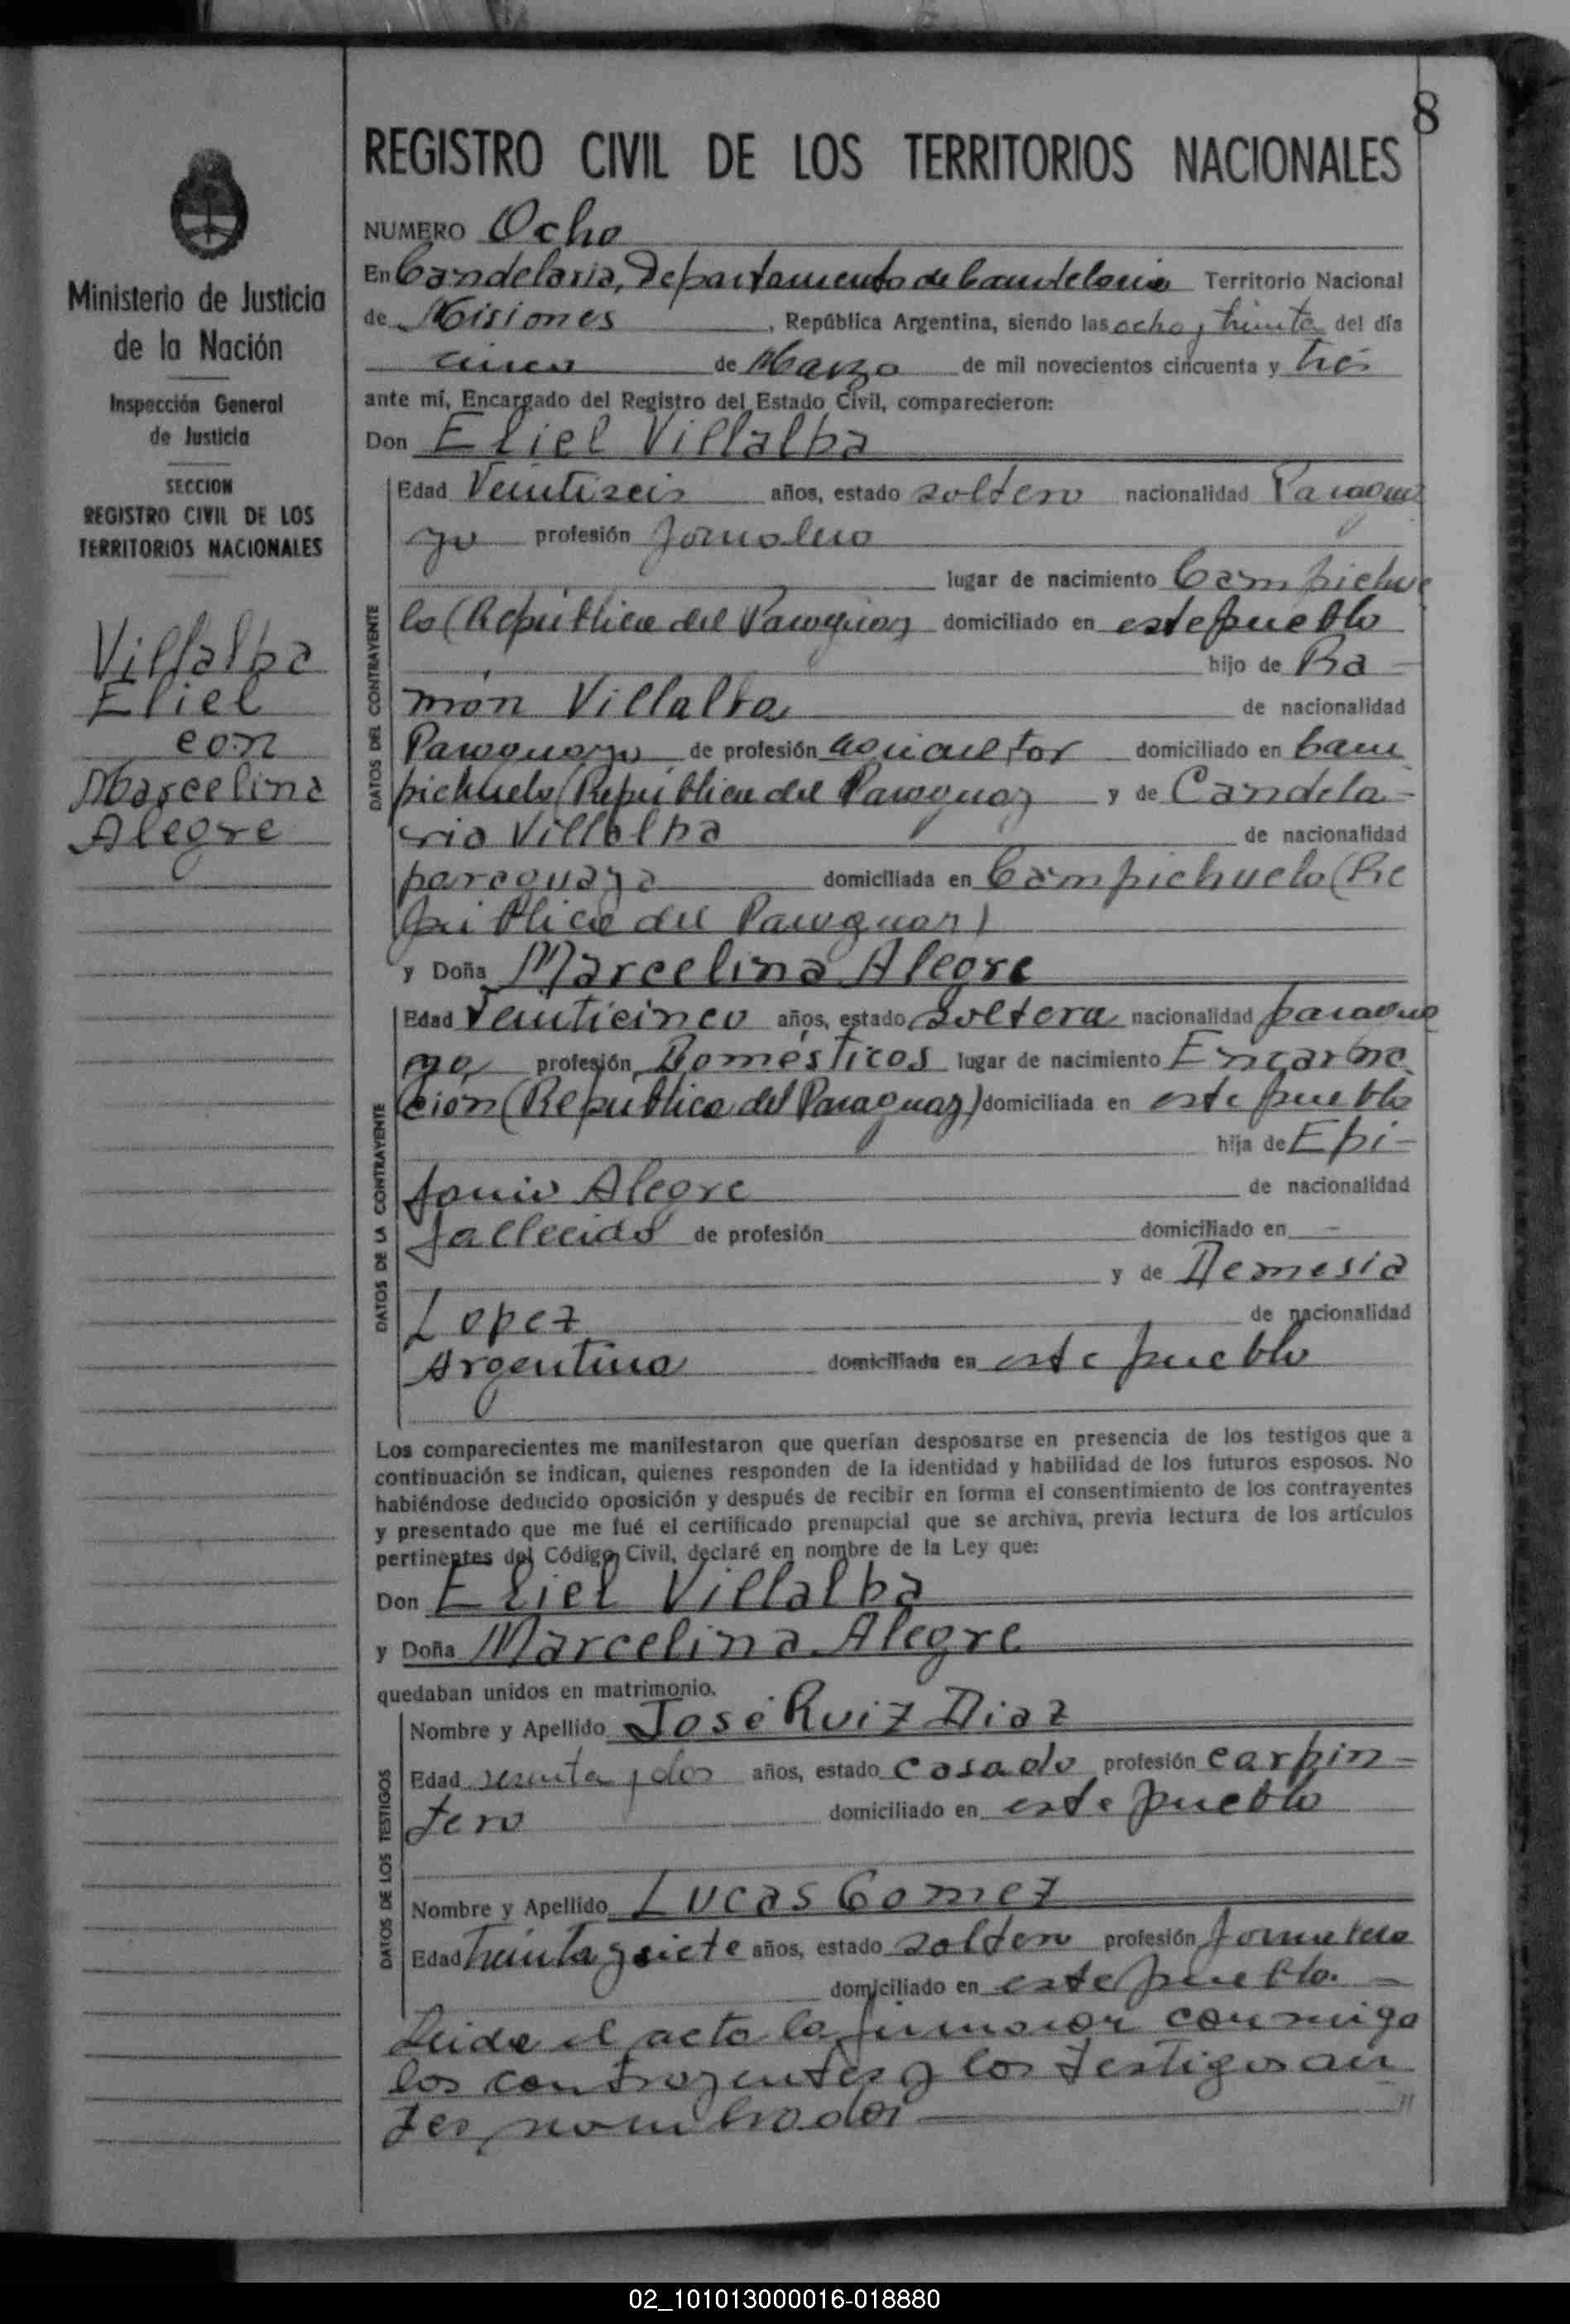 8
REGISTRO CIVIL DE LOS TERRITORIOS NACIONALES
Ministerio de Justicia
de la Nación
Inspección General
de Justicia
SECCION
REGISTRO CIVIL DE LOS
TERRITORIOS NACIONALES
Villalba
Eliel
con
Marcelina
Alegre
NUMERO Ocho
En Candelaria, Departamento de Candelaria Territorio Nacional
de Misiones, República Argentina, siendo las ocho y treinta del día
cinco de Marzo de mil novecientos cincuenta y tres
ante mí, Encargado del Registro del Estado Civil, comparecieron:
Don Eliel Villalba
DATOS DEL CONTRAYENTE
Edad Veintiseis años, estado soltero nacionalidad Paragua
yo profesión Jornalero
lugar de nacimiento Campichue
lo (República del Paraguay domiciliado en este pueblo
hijo de Ra-
món Villalba de nacionalidad
Paraguayo de profesión agricultor domiciliado en Cam
pichuelo (República del Paraguay y de Candela-
ria Villalba de nacionalidad
paraguaya domiciliada en Campichuelo (Re
pública del Paraguay)
y Doña Marcelina Alegre
DATOS DE LA CONTRAYENTE
Edad Veinticinco años, estado Soltera nacionalidad paragua
ya profesión Domésticos lugar de nacimiento Encarna
ción (República del Paraguay) domiciliada en este pueblo
hija de Epi-
fanio Alegre de nacionalidad
fallecido de profesión domiciliado en -
y de Demesia
Lopez de nacionalidad
Argentina domiciliada en este pueblo
Los comparecientes me manifestaron que querían desposarse en presencia de los testigos que a
continuación se indican, quienes responden de la identidad y habilidad de los futuros esposos. No
habiéndose deducido oposición y después de recibir en forma el consentimiento de los contrayentes
y presentado que me fué el certificado prenupcial que se archiva, previa lectura de los artículos
pertinentes del Código Civil, declaré en nombre de la Ley que:
Don Eliel Villalba
y Doña Marcelina Alegre
quedaban unidos en matrimonio.
DATOS DE LOS TESTIGOS
Nombre y Apellido José Ruiz Diaz
Edad sesenta y dos años, estado casado profesión carpin-
tero domiciliado en este pueblo
Nombre y Apellido Lucas Gomez
Edad treinta y siete años, estado soltero profesión Jornalero
domiciliado en este pueblo. -
Leida el acta la firmaron conmigo
los contrayentes y los testigos an
tes nombrados
02_101013000016-018880